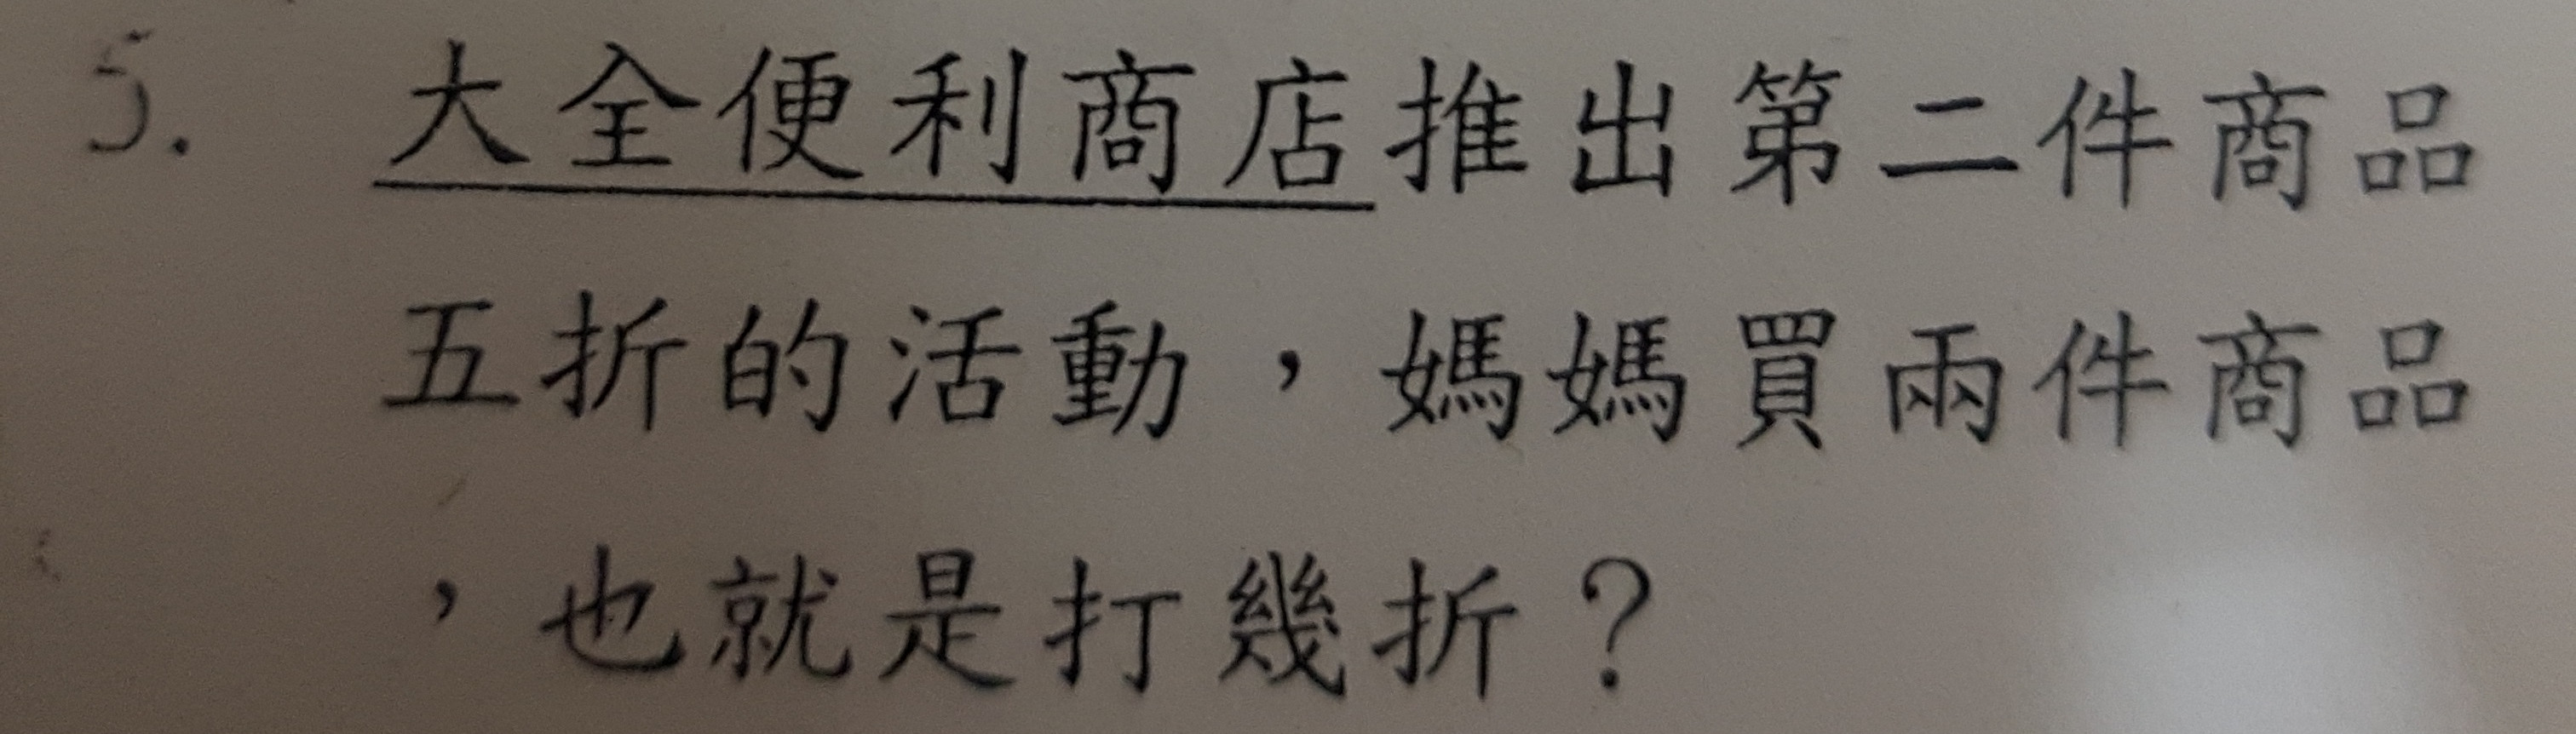 5. 大全便利商店推出第二件商品
五折的活動，媽媽買兩件商品
，也就是打幾折？